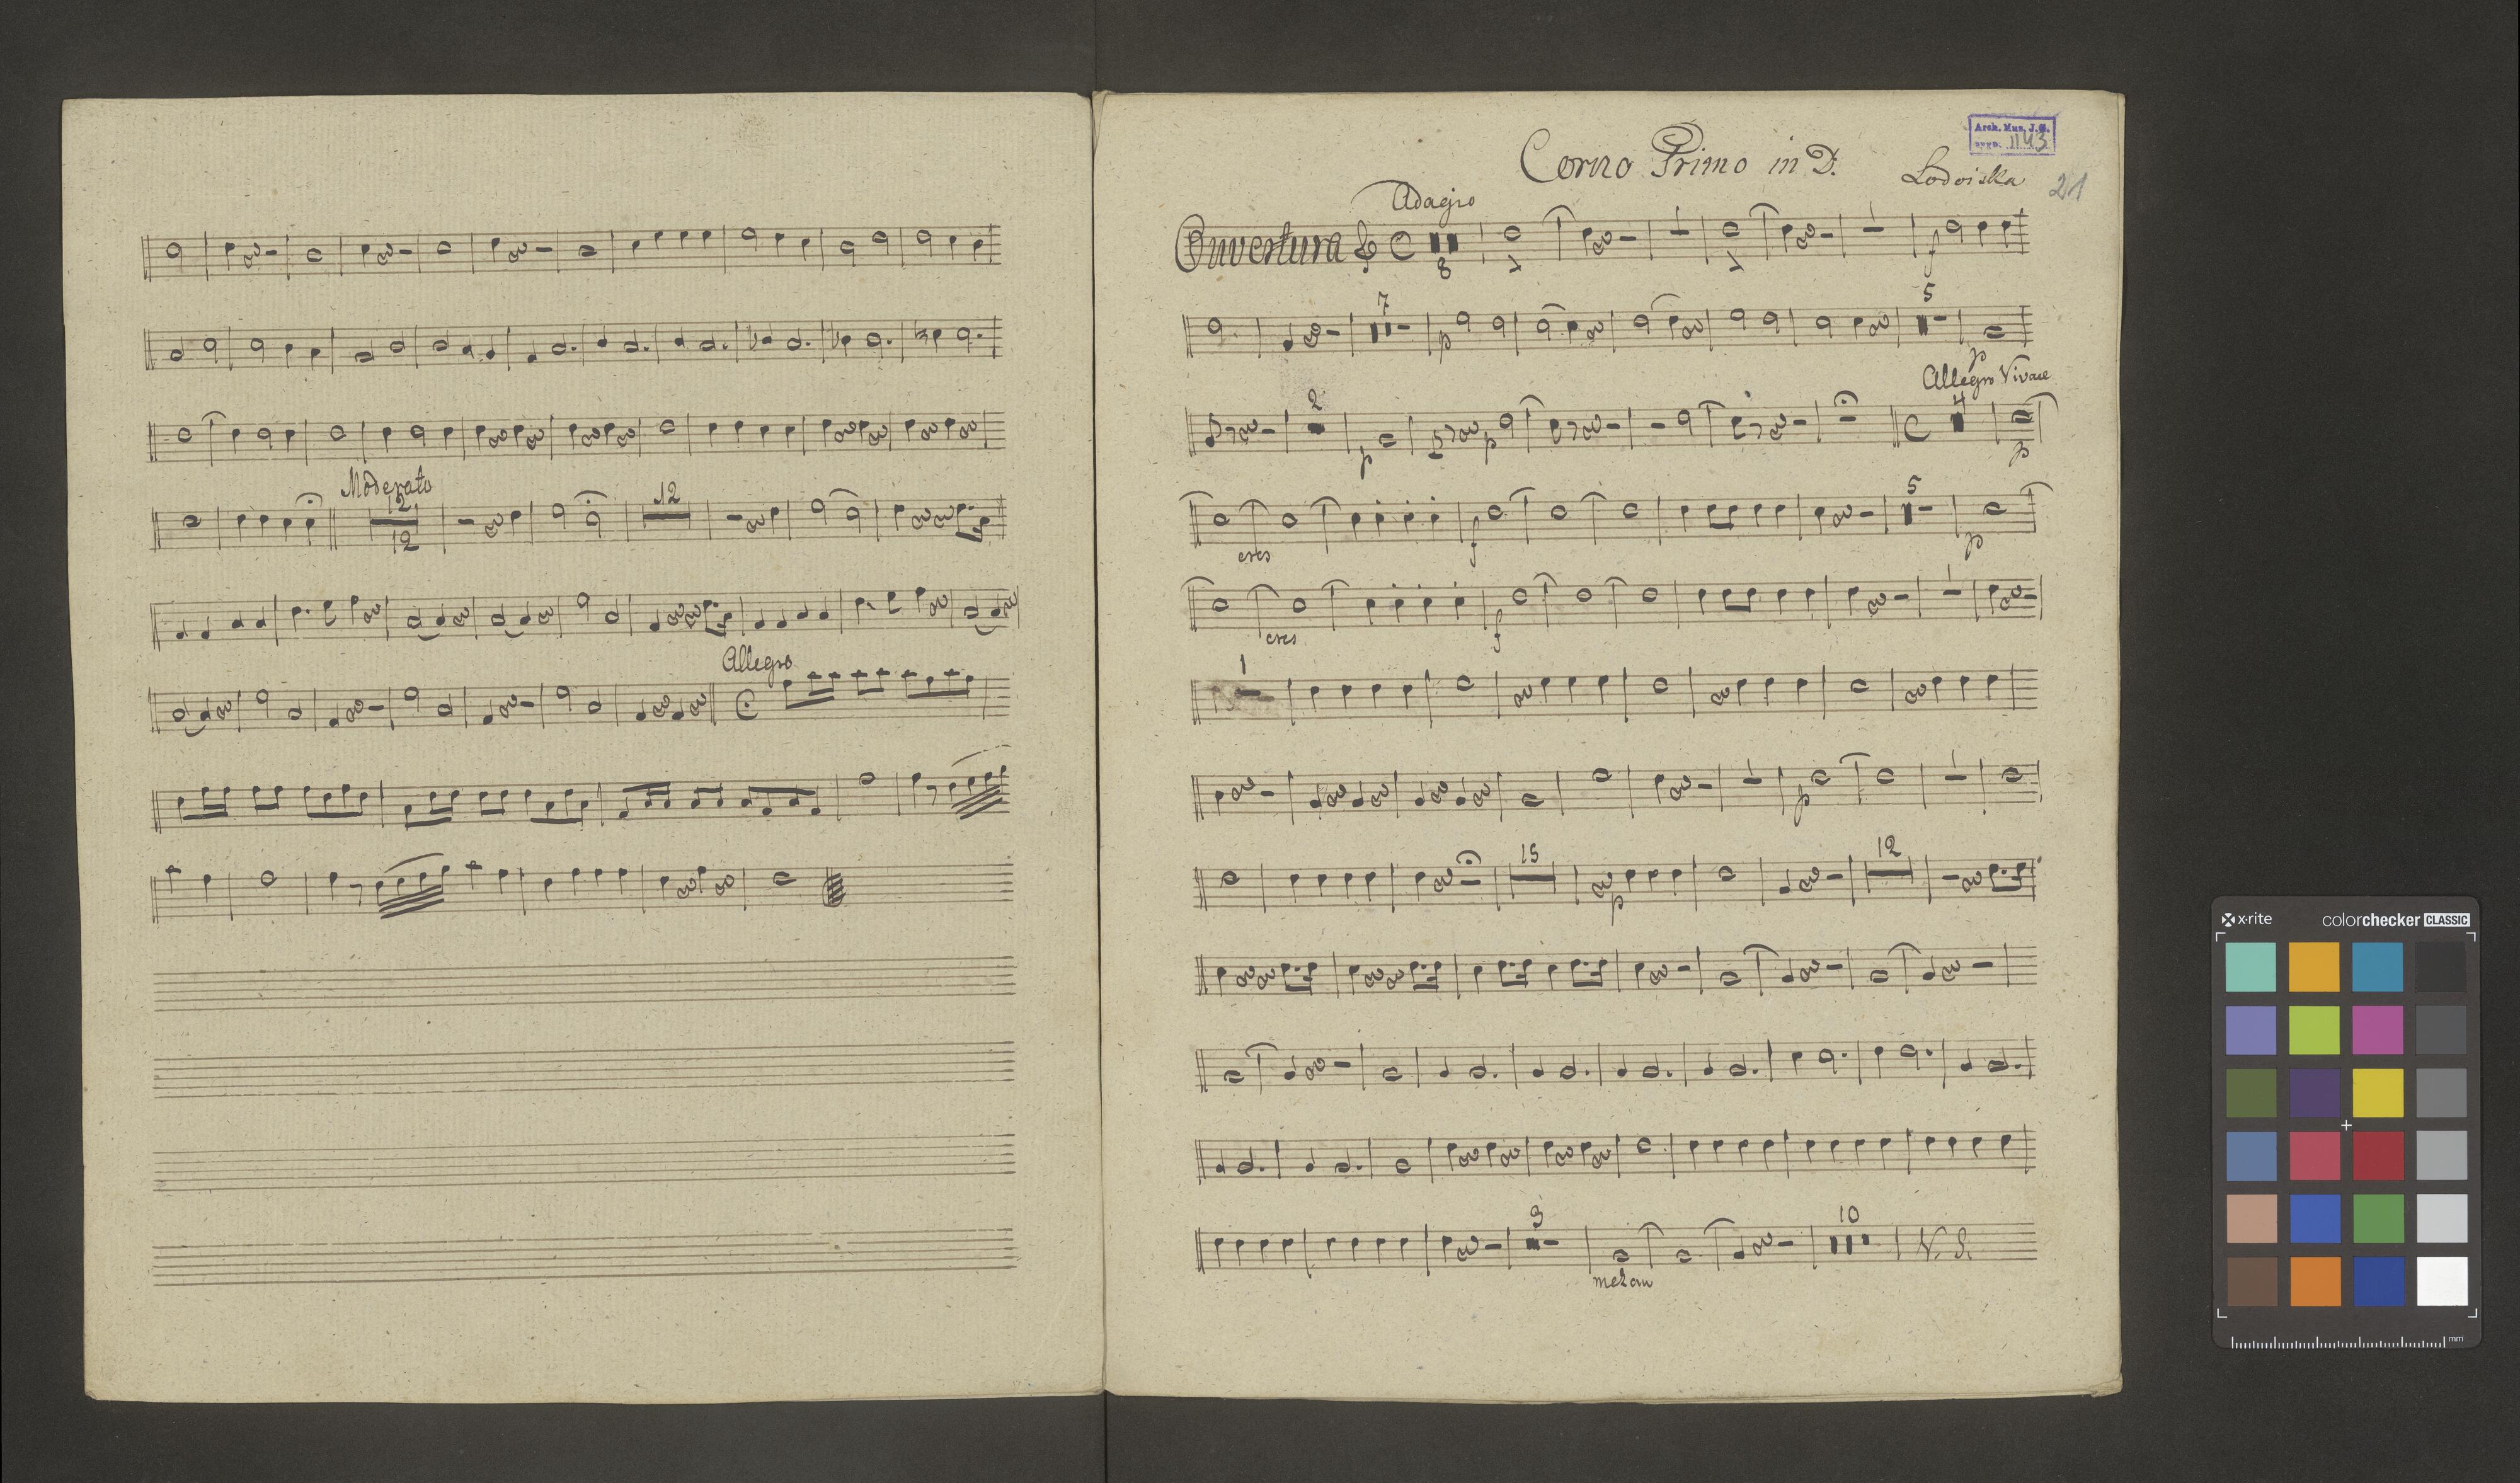 Moderato
12
12
12
Allegro
Arch. Mus. J.G.
sygn. 1143
Corno Primo in D.
Lodoiska
21
Adagio
Ouvertura
8
f
7
5
p
p
Allegro Vivace
2
4
p
p
p
5
cres
f
p
cres
f
1
p
15
12
p
9
10
V. S.
x·rite
colorchecker CLASSIC
mm